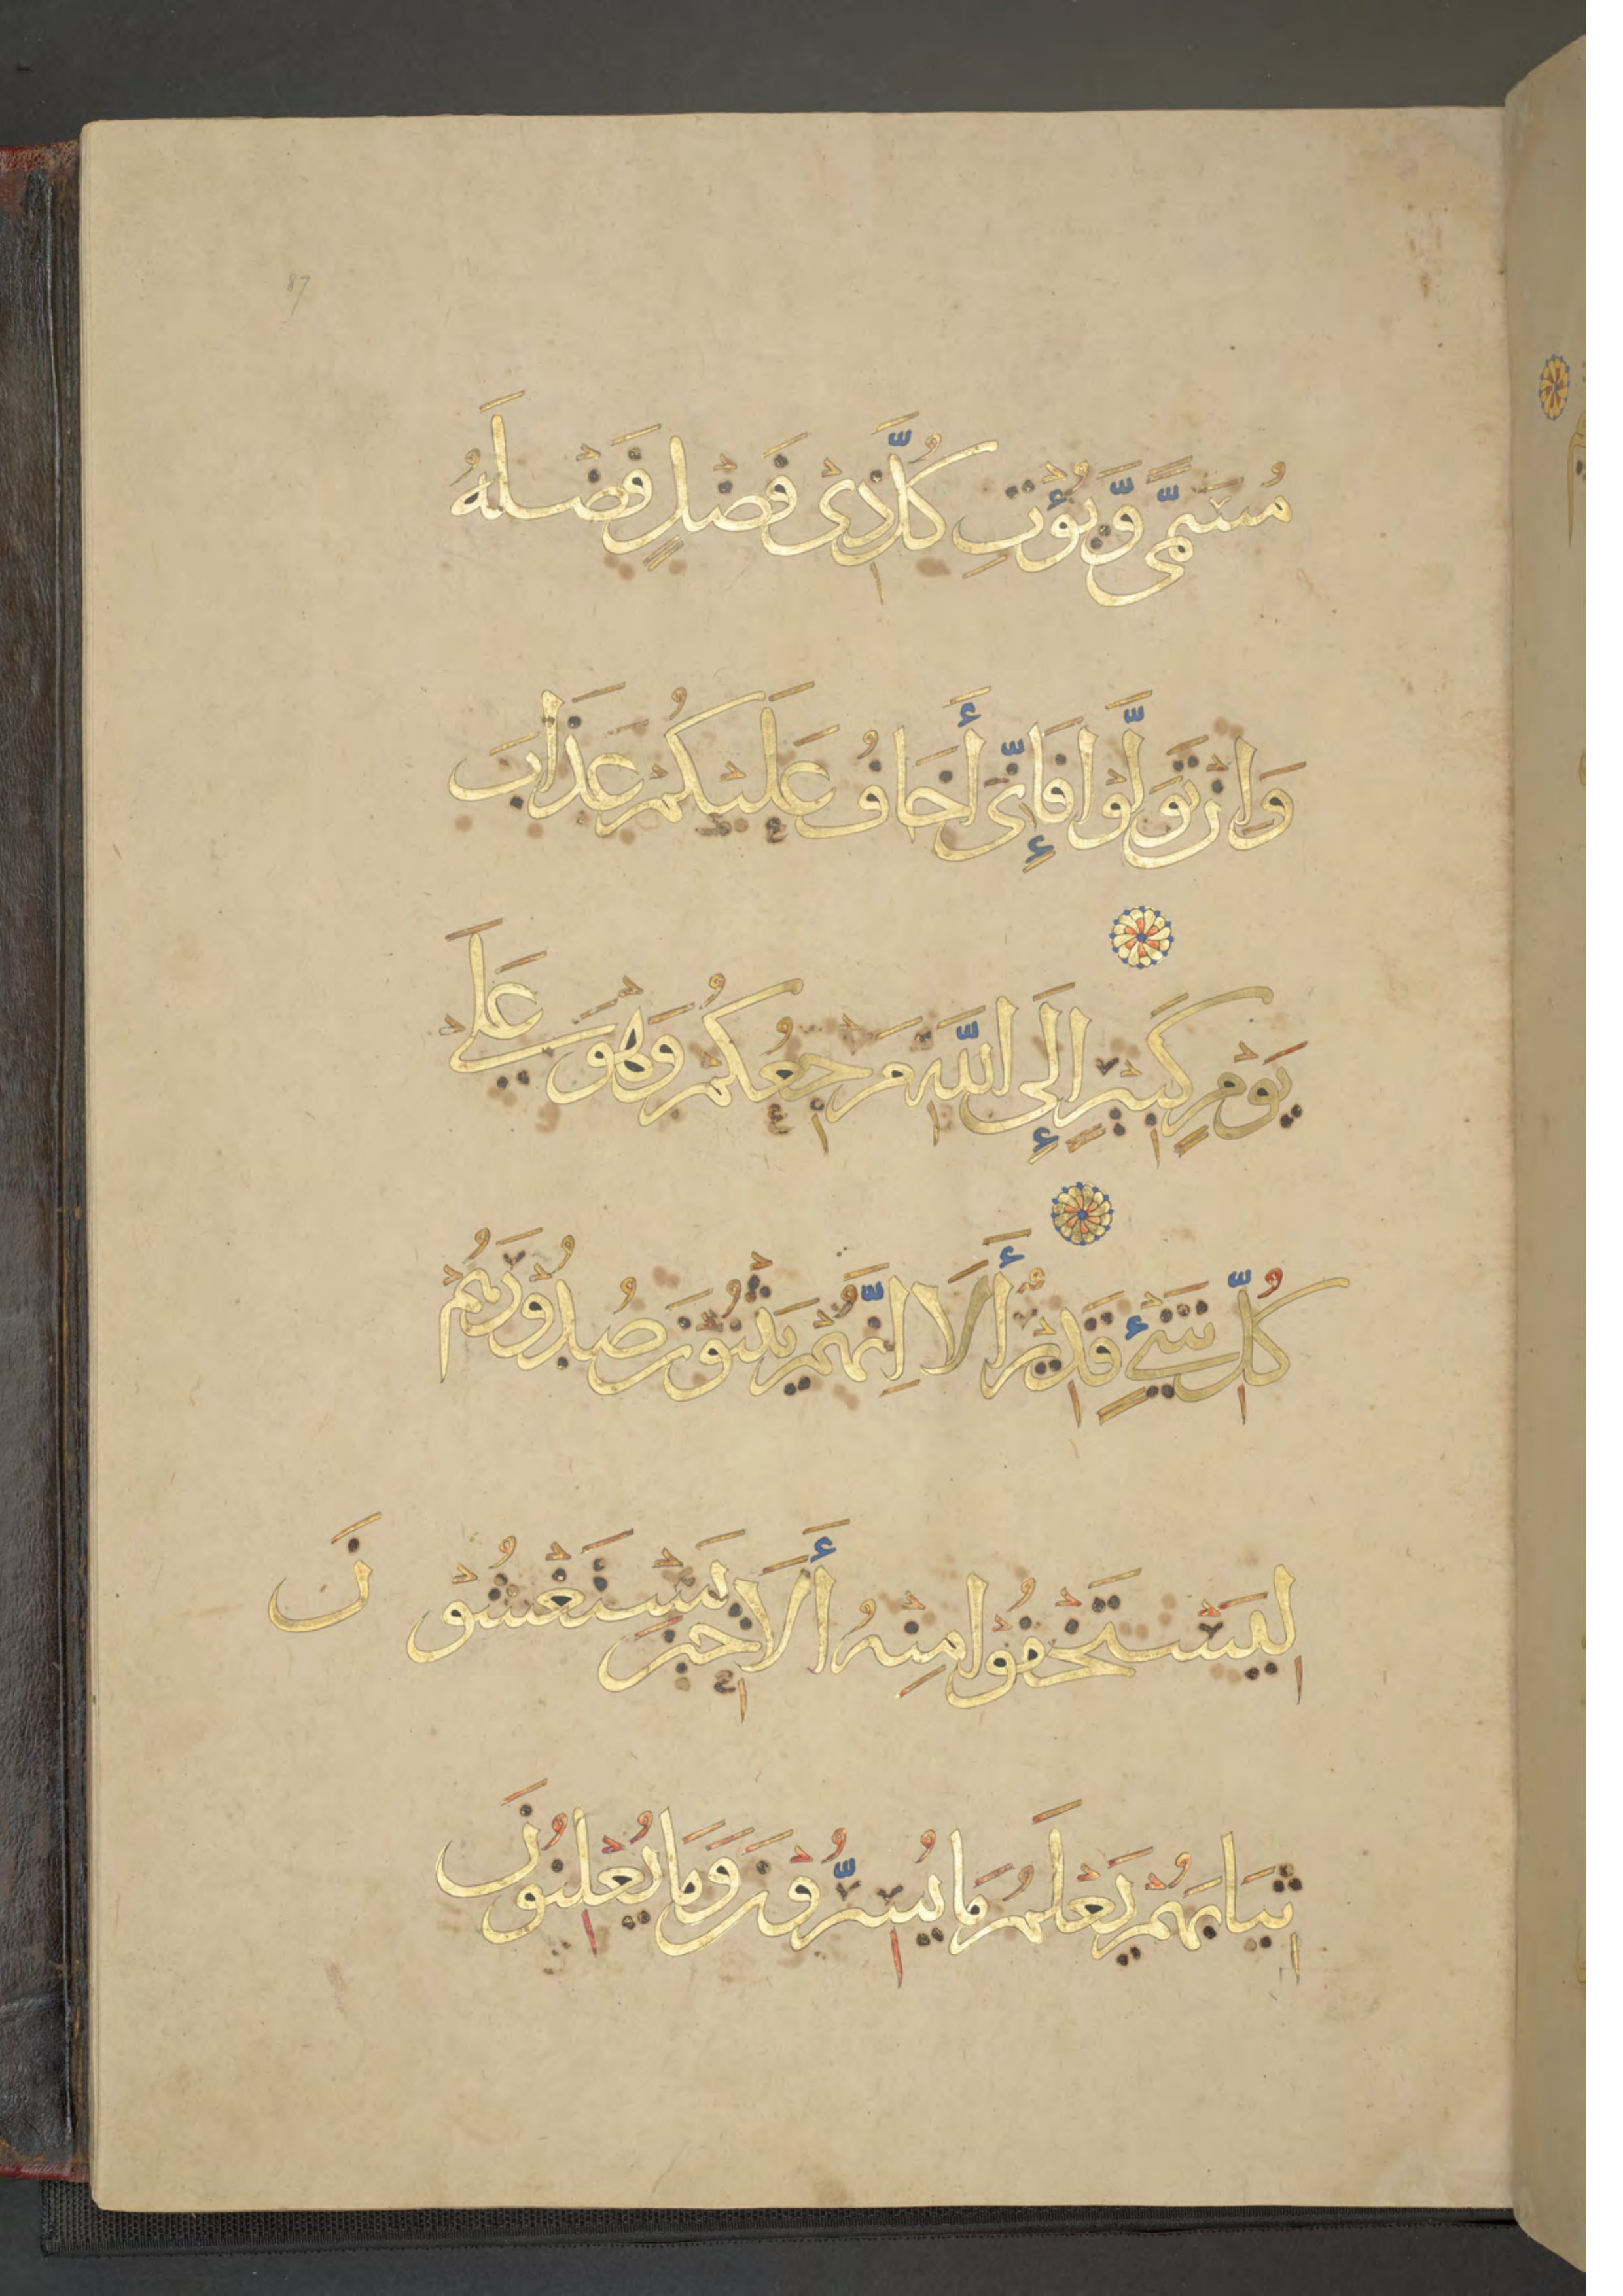 87
مُسَمًّى وَّيُؤْتِ كُلَّ ذِىْ فَضْلٍ فَضْلَهُ
وَاِنْ تَوَلَّوْا فَإِنِّىْ أَخَافُ عَلَيْكُمْ عَذَابَ
يَوْمٍ كَبِيْرٍ إِلَى اللَّهِ مَرْجِعُكُمْ وَهُوَ عَلَى
كُلِّ شَيْءٍ قَدِيْرٌ أَلَا اِنَّهُمْ يَثْنُوْنَ صُدُوْرَهُمْ
لِيَسْتَخْفُوْا مِنْهُ أَلَا حِيْنَ يَسْتَغْشُوْنَ
ثِيَابَهُمْ يَعْلَمُ مَا يُسِرُّوْنَ وَمَا يُعْلِنُوْنَ